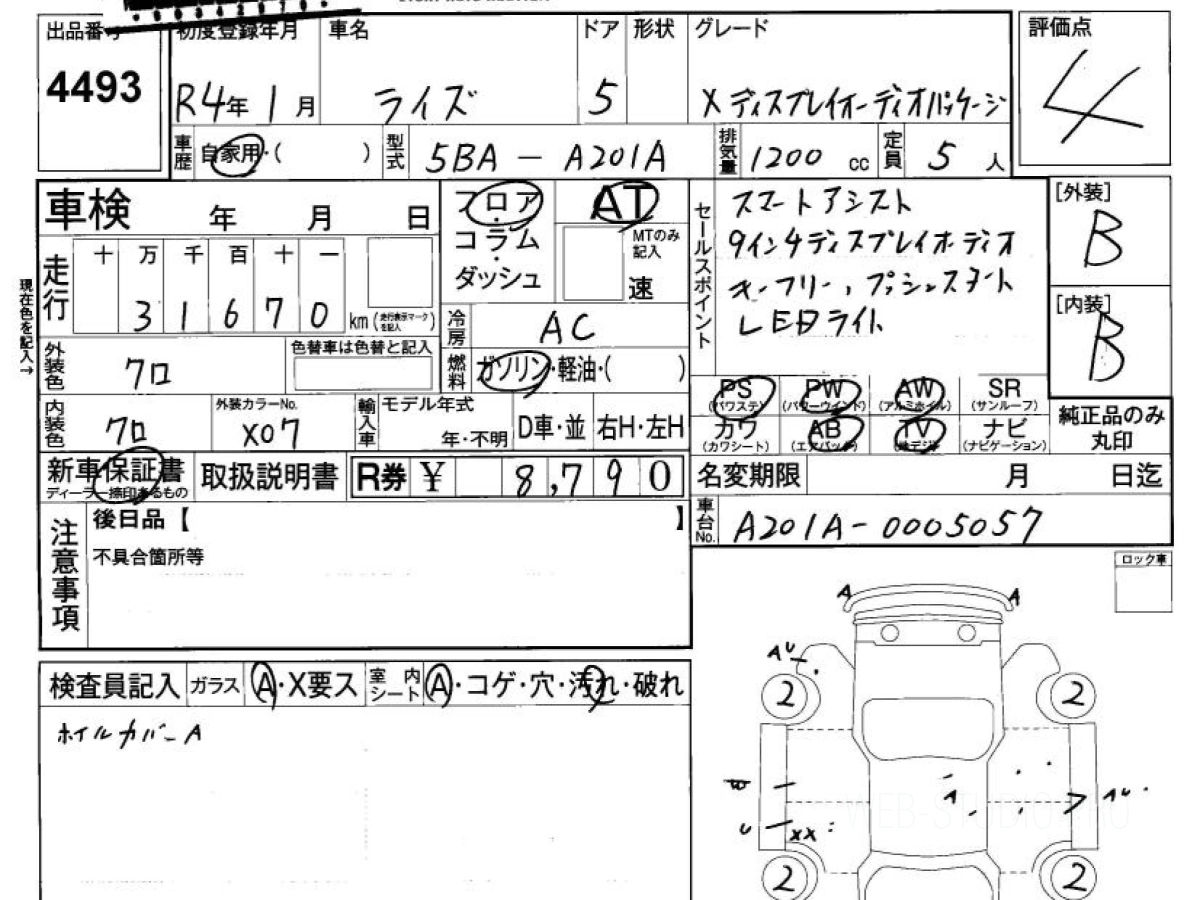 出品番号
4493
初度登録年月
R4年 1月
車名
ライズ
ドア
5
形状
グレード
X ディスプレイオーディオパッケージ
評価点
4
車歴
自家用・( )
型式
5BA - A201A
排気量
1200 cc
定員
5 人
車検 年 月 日
走行
十 万 千 百 十 一
3 1 6 7 0
km(走行表示マークを記入)
現在色を記入→
外装色
クロ
色替車は色替と記入
内装色
クロ
外装カラーNo.
X07
輸入車
モデル年式
年・不明
D車・並
右H・左H
フロア
・
コラム
・
ダッシュ
AT
MTのみ
記入
速
冷房
AC
燃料
ガソリン・軽油・( )
セールスポイント
スマートアシスト
9インチディスプレイオーディオ
キーフリー、プッシュスタート
LEDライト
[外装]
B
[内装]
B
PS
(パワステ)
PW
(パワーウインド)
AW
(アルミホイル)
SR
(サンルーフ)
カワ
(カワシート)
AB
(エアバック)
TV
(地デジ)
ナビ
(ナビゲーション)
純正品のみ
丸印
新車保証書
ディーラー捺印あるもの
取扱説明書
R券 ¥ 8,790
名変期限 月 日迄
車台No.
A201A-0005057
注意事項
後日品【 】
不具合箇所等
ロック車
検査員記入
ガラス
A・X要ス
室内シート
A・コゲ・穴・汚れ・破れ
ホイルカバーA
A A
AU
2 2
A
AU
U
XX
2 2
WEB-STUDIO.RU